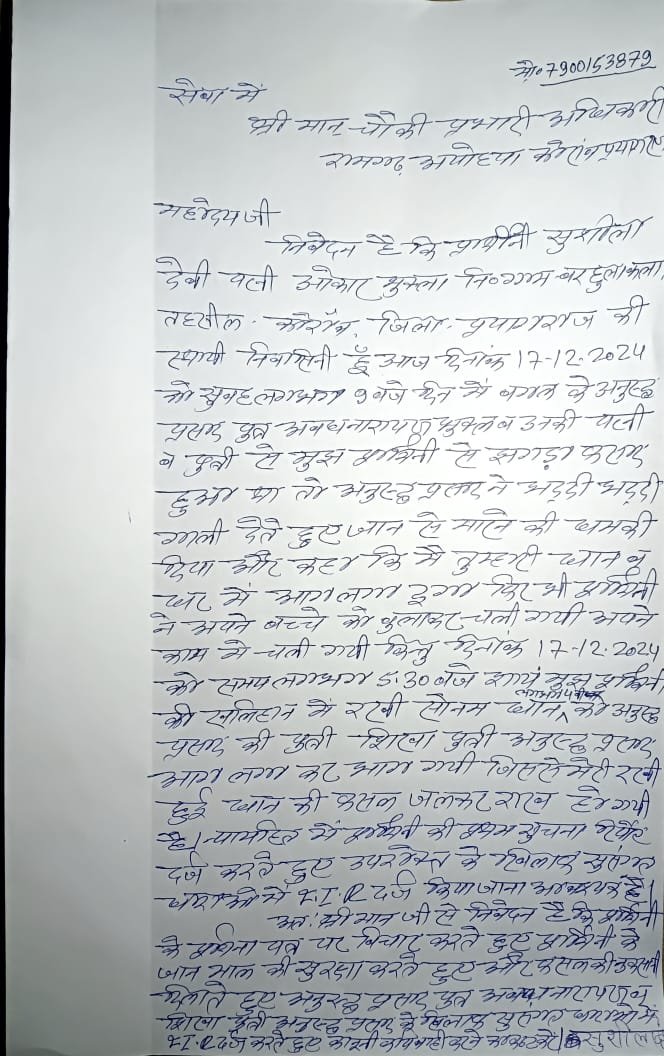 मो० 7900153879
सेवा में
श्री मान् चौकी प्रभारी अधिकारी
रामगढ़ अयोध्या कोरांव प्रयागराज
महोदय जी
निवेदन है कि प्रार्थिनी सुशीला
देवी पत्नी ओंकार शुक्ला नि० ग्राम बरहुला कला
तहसील - कोरॉव, जिला - प्रयागराज की
स्थायी निवासिनी हूँ आज दिनांक 17-12-2024
को सुबह लगभग 9 बजे दिन में बगल के अनुरुद्ध
प्रसाद पुत्र अवधनारायण शुक्ल व उनकी पत्नी
व पुत्री से मुझ प्रार्थिनी से झगड़ा फसाद
हुआ था तो अनुरुद्ध प्रसाद ने भद्दी भद्दी
गाली देते हुए जान से मारने की धमकी
दिया और कहा कि मै तुम्हारी धान व
घर में आग लगा दूगा फिर भी प्रार्थिनी
ने अपने बच्चे को बुलाकर चली गयी अपने
काम में चली गयी किन्तु दिनांक 17-12-2024
को समय लगभग 5:30 बजे शायं मुझ प्रार्थिनी
की खलिहान में रखी सोनम धान लगभग को अनुरुद्ध
प्रसाद की पुत्री शिखा पुत्री अनुरुद्ध प्रसाद
आग लगा कर भाग गयी जिससे मेरी रखी
हुई धान की फसल जलकर राख हो गयी
है। न्यायहित में प्रार्थिनी की प्रथम सूचना रिपोर्ट
दर्ज करते हुए उपरोक्त के खिलाफ सुसंगत
धाराओं में F.I.R दर्ज किया जाना आवश्यक है।
अतः श्री मान जी से निवेदन है कि प्रार्थिनी
के प्रार्थना पत्र पर विचार करते हुए प्रार्थिनी के
जान माल की सुरक्षा करते हुए और फसल की नुकसानी
दिलाते हुए अनुरुद्ध प्रसाद पुत्र अवधनारायण व
शिखा पुत्री अनुरुद्ध प्रसाद के खिलाफ सुसंगत धाराओं में
F.I.R दर्ज करते हुए कानूनी कार्यवाही करने का कष्ट करें। सुशीला